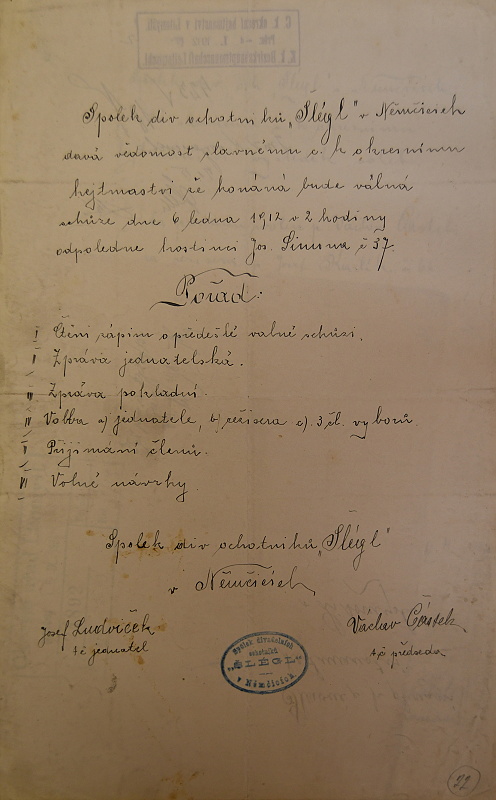 Spolek div ochotníků „Šlégl" v Němčicích
dává vědomost slavnému c. k okresnímu
hejtmaství že konáná bude válná
schůze dne 6 ledna 1912 v 2 hodiny
odpoledne hostinci Jos. Šimna č 37.
Pořad:
I Čtění zápisu o předešlé valné schůzi.
II Zpráva jednatelská.
III Zpráva pokladní.
IV Volba a) jednatele, b) režisera c). 3 čl. vyborů.
V Přijímání členů.
VI Volné návrhy.
Spolek div ochotníhů „Šlégl"
v Němčicích
Josef Ludvíček
t č jednatel
Václav Částek
t.č předseda
Spolek divadelních
ochotníků
"ŠLÉGL"
v Němčicích
22